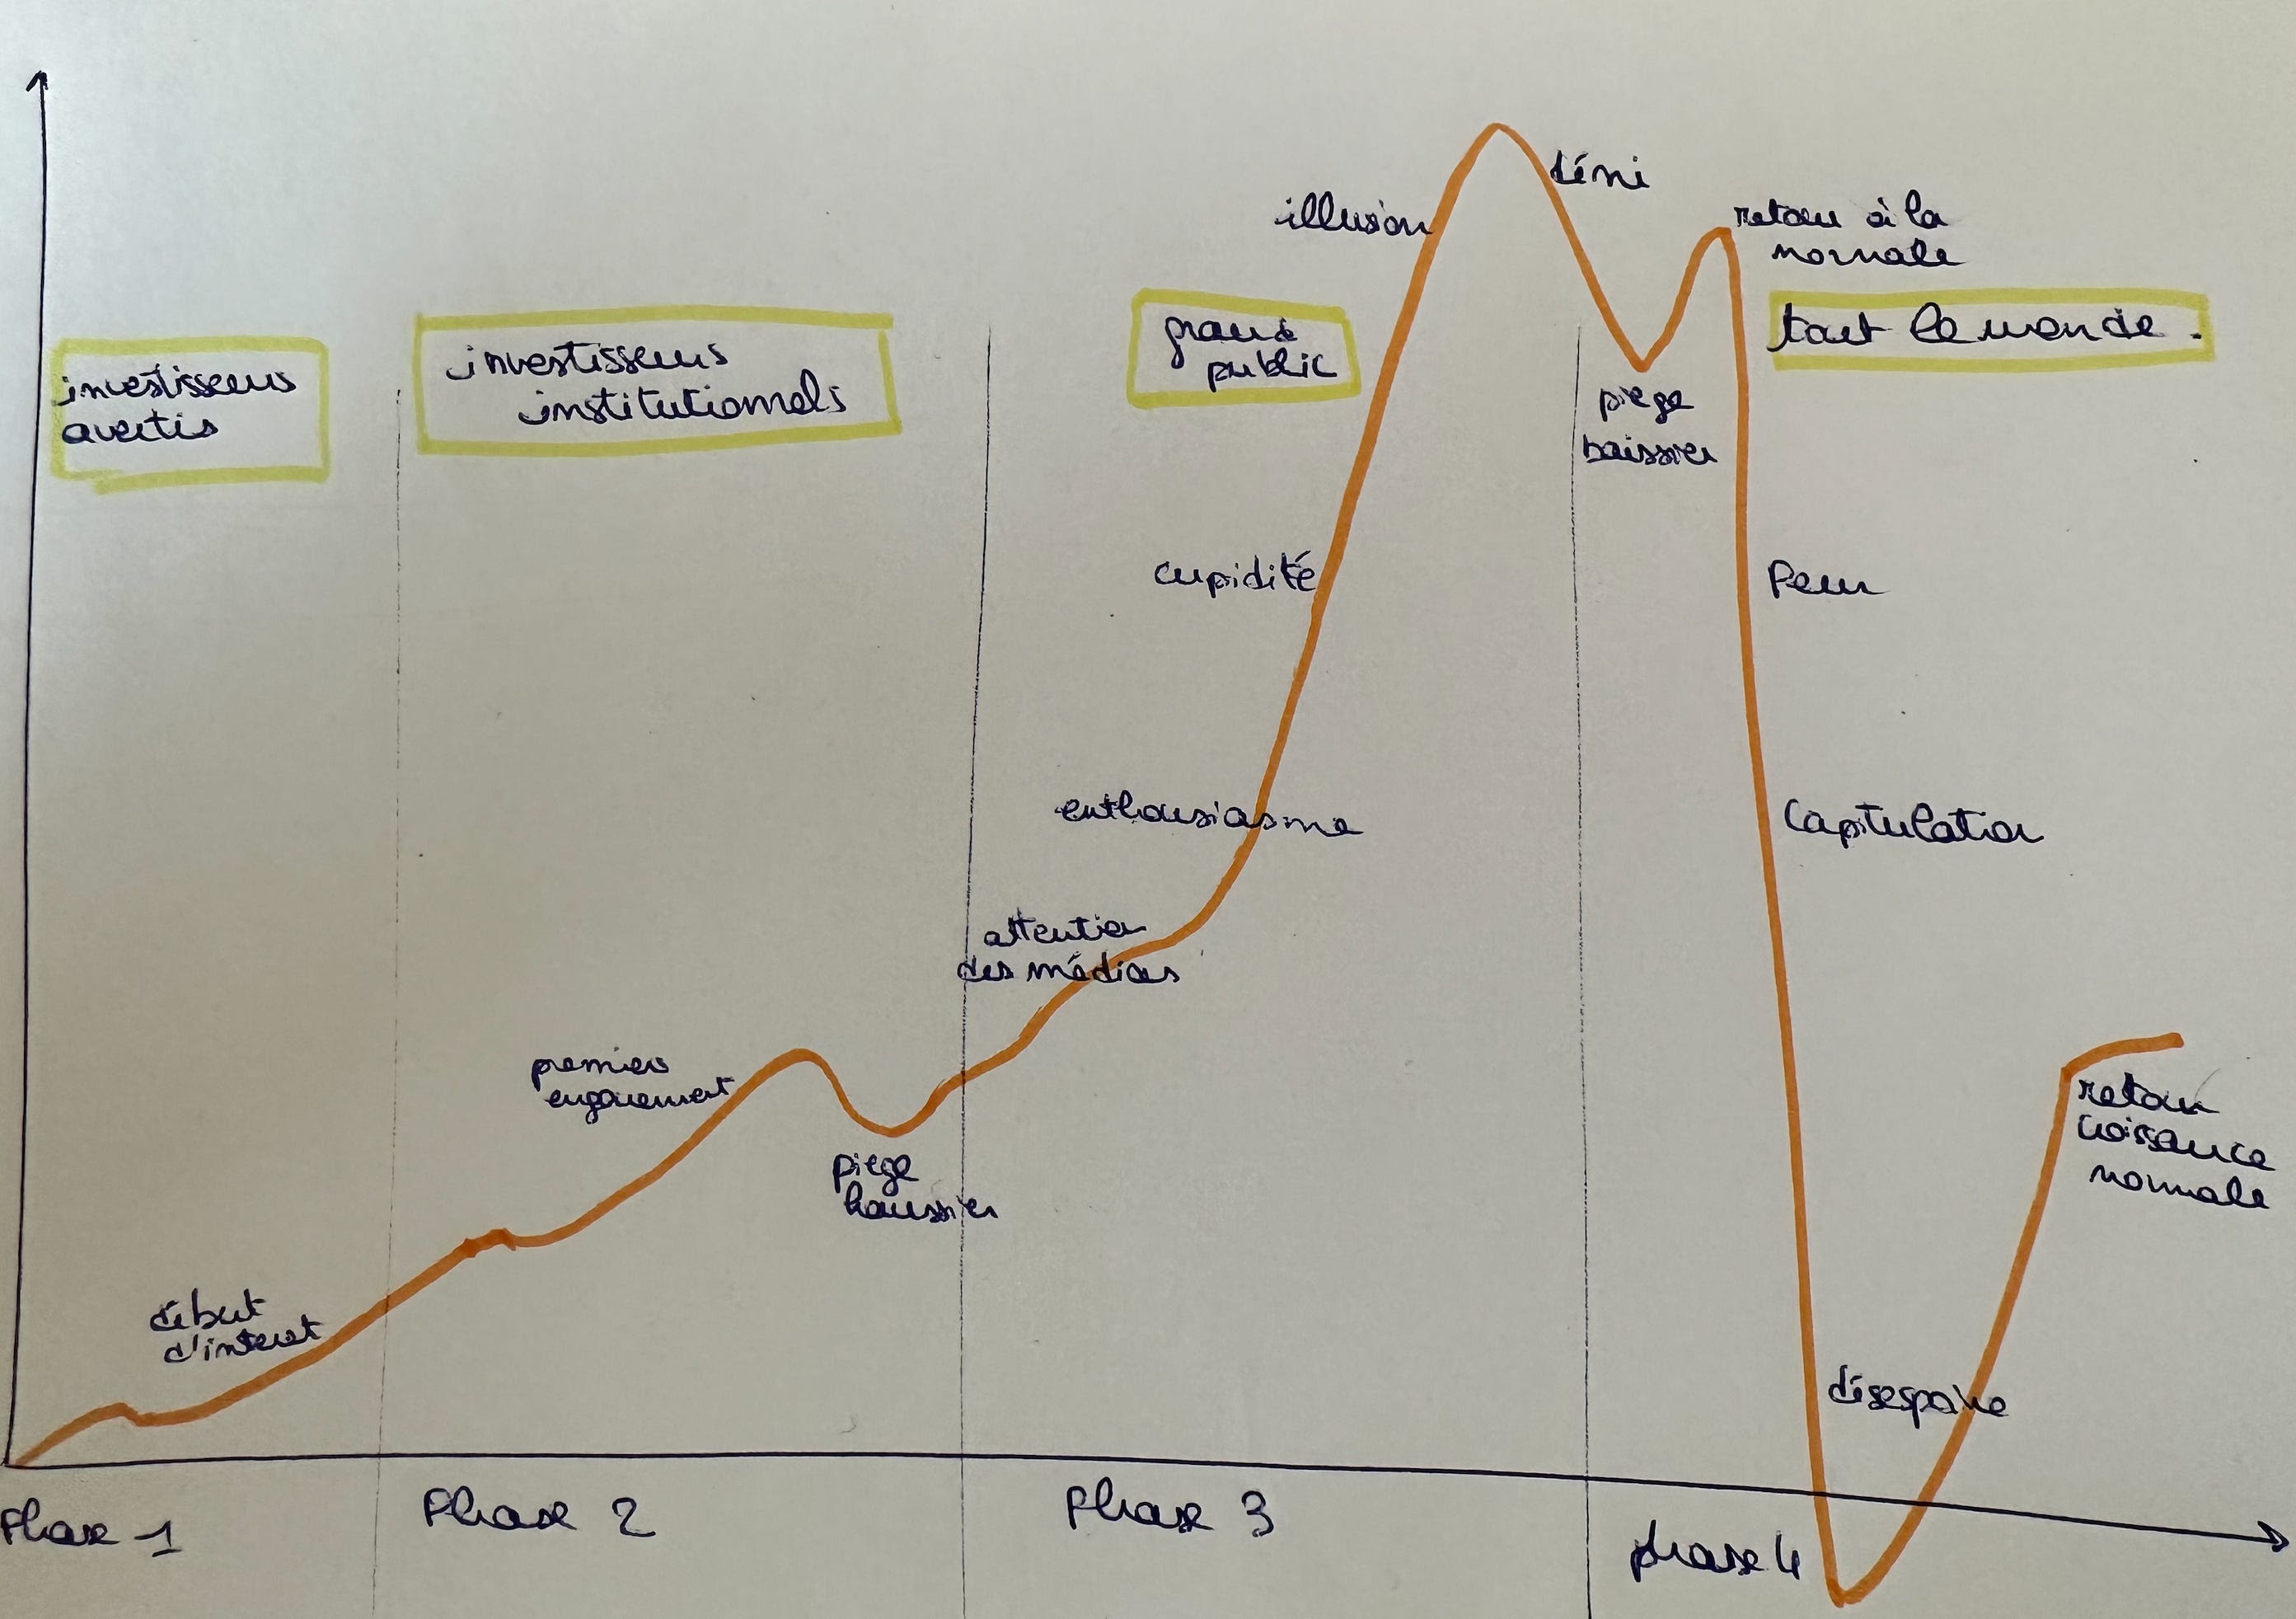 investisseurs
avertis
investisseurs
institutionnels
grand
public
tout le monde.
illusion
déni
retour à la
normale
piège
baissier
cupidité
Peur
enthousiasme
Capitulation
attention
des médias
premiers
engouement
piège
haussier
début
d'interet
retour
croissance
normale
désespoire
Phase 1
Phase 2
Phase 3
phase 4